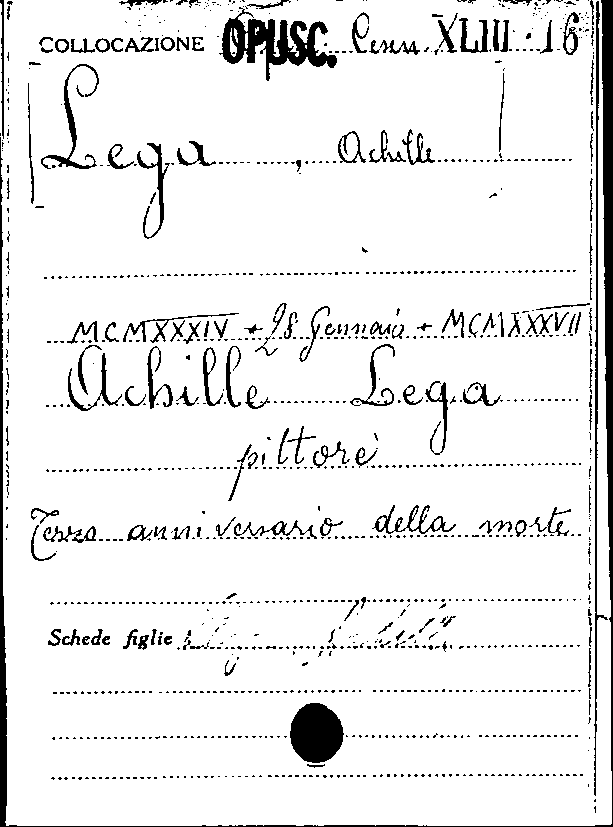 COLLOCAZIONE OPUSC. Cesen. XLIII · 16
[Lega, Achille]
MCMXXXIV + 28 Gennaio + MCMXXXVII
Achille Lega
pittore
Terzo anniversario della morte
Schede figlie